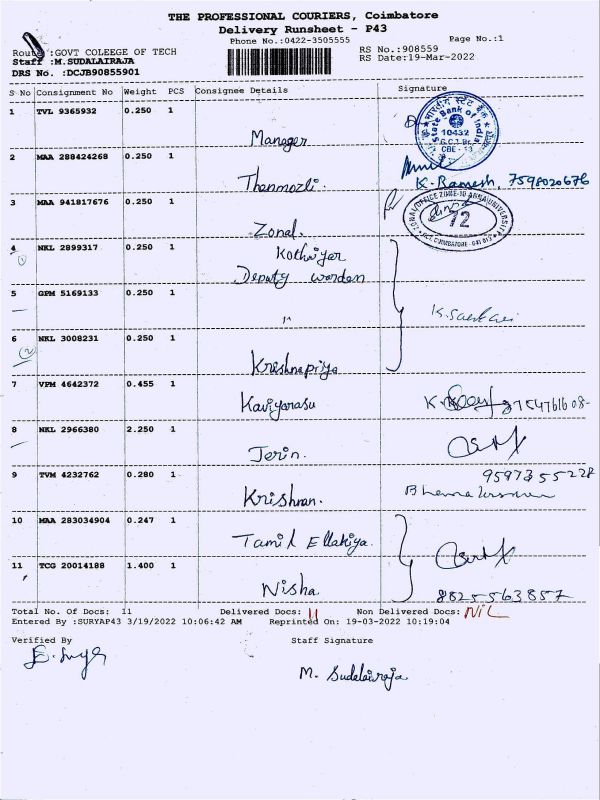 THE PROFESSIONAL COURIERS, Coimbatore
Delivery Runsheet - P43
Phone No.:0422-3505555
Page No.:1
Route :GOVT COLEEGE OF TECH
RS No.:908559
Staff :M.SUDALAIRAJA
RS Date:19-Mar-2022
DRS No. :DCJB90855901
S No Consignment No Weight PCS Consignee Details Signature
1 TVL 9365932 0.250 1
Manager
भारतीय स्टेट बैंक
State Bank of India
10432
CBE - 13
2 MAA 288424268 0.250 1
Thenmozli. K. Ramesh, 7598020676
3 MAA 941817676 0.250 1
Zonal.
ZONAL OFFICE ZONE-10 ANNA UNIVERSITY
72
4 NKL 2899317 0.250 1
Kothaiyar
Deputy warden
5 GPM 5169133 0.250 1
"
6 NKL 3008231 0.250 1
(2)
Krishnapriya
7 VPM 4642372 0.455 1
Kaviyarasu
8 NKL 2966380 2.250 1
Jerin.
9 TVM 4232762 0.280 1
Krishnan.
9597355228
10 MAA 283034904 0.247 1
Tamil Ellakiya.
11 TCG 20014188 1.400 1
Nisha
8825563857
Total No. Of Docs: 11 Delivered Docs: 11 Non Delivered Docs: NIL
Entered By :SURYAP43 3/19/2022 10:06:42 AM Reprinted On: 19-03-2022 10:19:04
Verified By Staff Signature
M. Sudalairaja